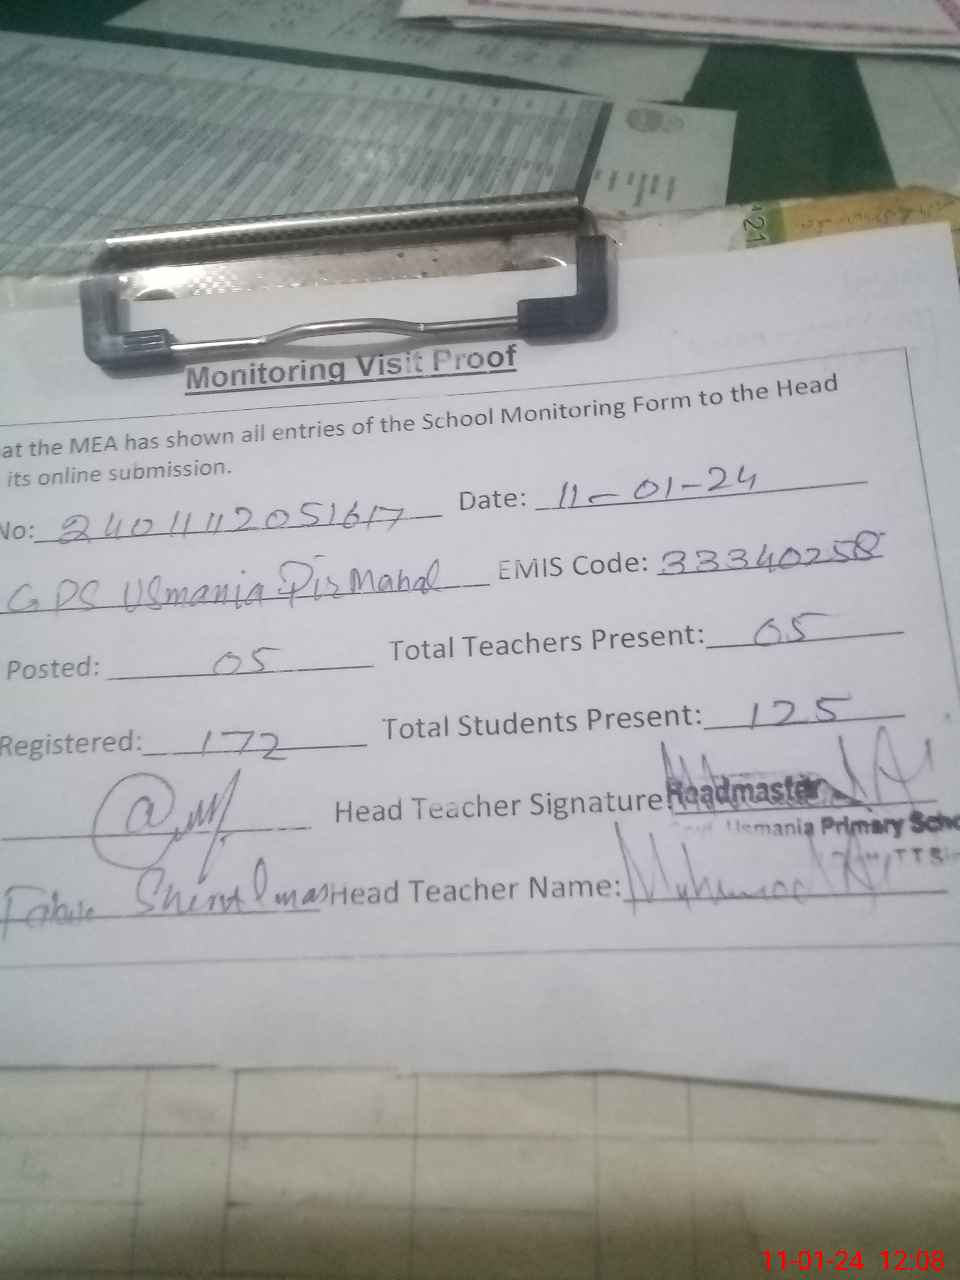 121
Monitoring Visit Proof
at the MEA has shown all entries of the School Monitoring Form to the Head
its online submission.
No: 2401112051617 Date: 11-01-24
GPS Usmania Pir Mahal EMIS Code: 33340258
Posted: 05 Total Teachers Present: 05
Registered: 172 Total Students Present: 125
Head Teacher Signature Headmaster
Usmania Primary Scho
Head Teacher Name: Muhammad
11-01-24 12:08